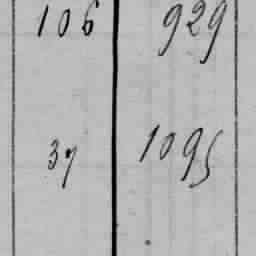 106 929
37 1095